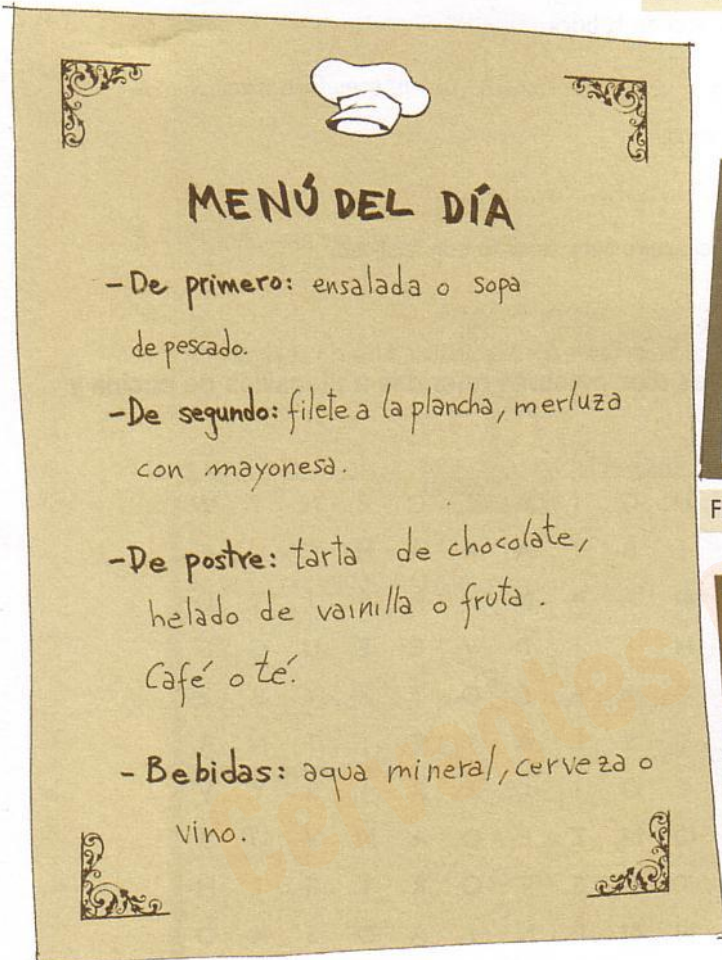 MENÚ DEL DÍA
- De primero: ensalada o sopa
de pescado.
- De segundo: filete a la plancha, merluza
con mayonesa.
- De postre: tarta de chocolate,
helado de vainilla o fruta.
Café o té.
- Bebidas: agua mineral, cerveza o
vino.
F
Cervantes